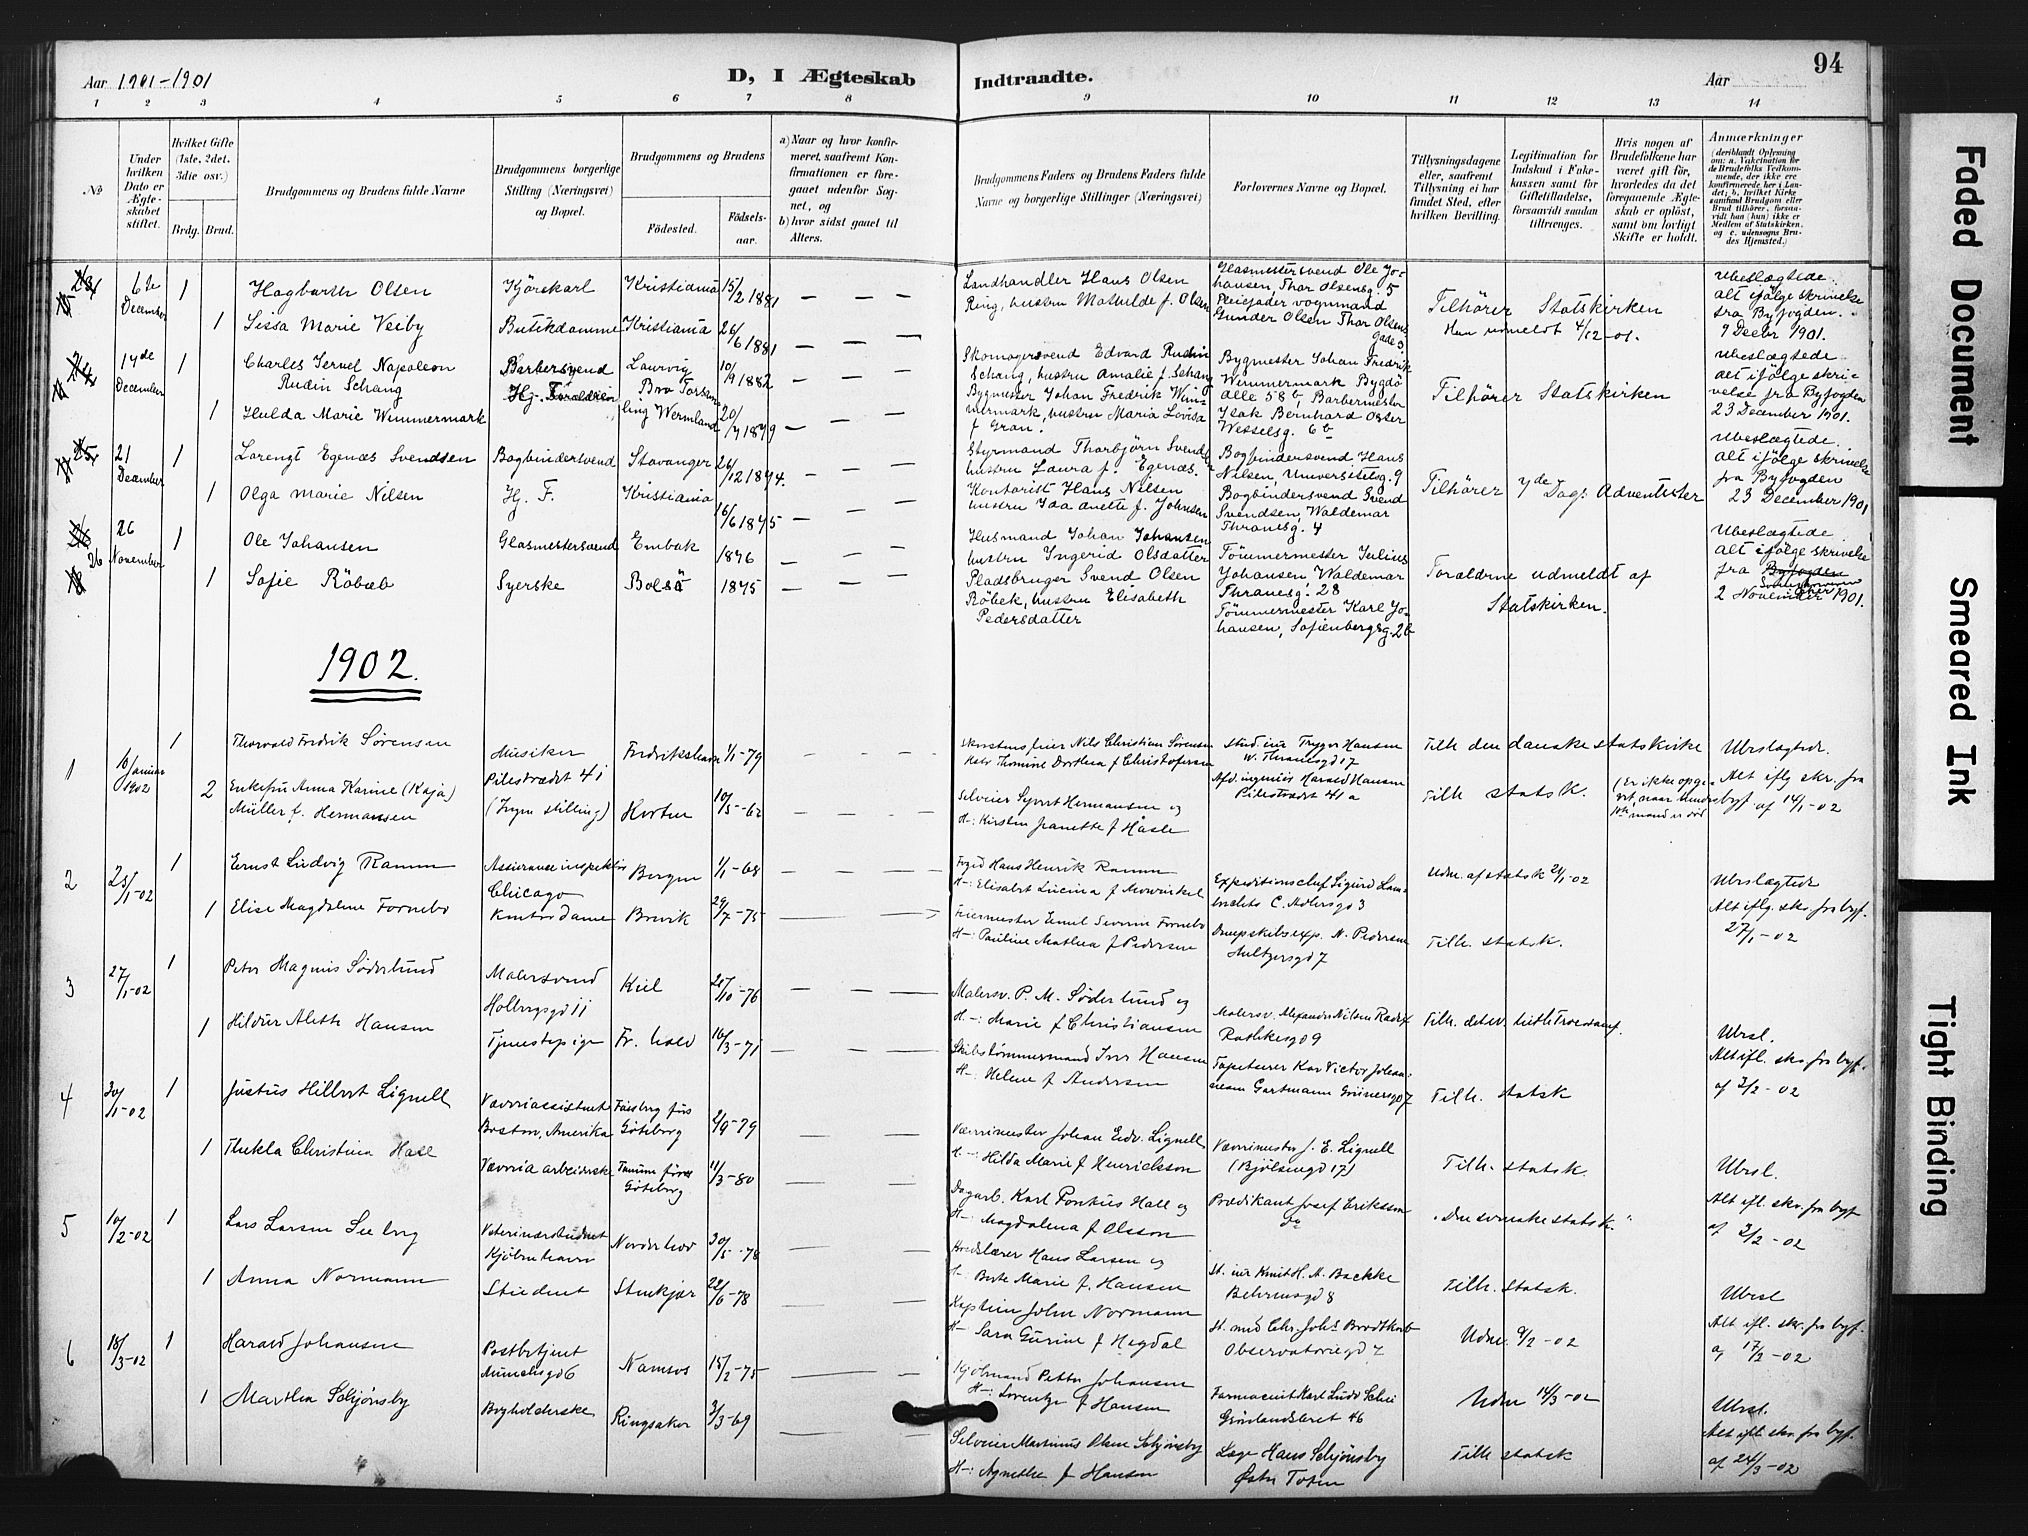 Aar 1901-1901
D, I Ægteskab
Indtraadte.
Aar
94
1 2 3 4 5 6 7 8 9 10 11 12 13 14
No
Under hvilken Dato er Ægteskabet stiftet.
Hvilket Gifte (1ste, 2det, 3die osv.)
Brdg. Brud.
Brudgommens og Brudens fulde Navne
Brudgommens borgerlige Stilling (Næringsvei) og Bopæl.
Brudgommens og Brudens
Fødested.
Fødselsaar.
a) Naar og hvor konfirmeret, saafremt Konfirmationen er foregaaet udenfor Sognet, og
b) hvor sidst gaaet til Alters.
Brudgommens Faders og Brudens Faders fulde Navne og borgerlige Stillinger (Næringsvei)
Forlovernes Navne og Bopæl.
Tillysningsdagene eller, saafremt Tillysning ei har fundet Sted, efter hvilken Bevilling.
Legitimation for Indskud i Enkekassen samt for Giftetilladelse, forsaavidt saadan tiltrænges.
Hvis nogen af Brudefolkene har været gift før, hvorledes da det foregaaende Ægteskab er opløst, samt om lovligt Skifte er holdt.
Anmærkninger
(deriblandt Oplysning om: a. Vakcination for de Brudefolks Vedkommende, der ikke ere konfirmerede her i Landet; b. hvilket Kirkesamfund Brudgom eller Brud tilhører, forsaavidt han (hun) ikke er Medlem af Statskirken, og c. udensogns Brudes Hjemsted.)
6te December
1
Hagbarth Olsen
Kjörekarl
Kristiania
15/2 1881
Landhandler Hans Olsen
Ring, hustru Mathilde f. Olsen
Glasmestersvend Ole Johansen, Thor Olsensg. 5
Pleiefader vognmand
Gunder Olsen Thor Olsens gade 3
Tilhører Statskirken
Han udmeldt 4/12-01.
Ubeslægtede.
alt ifølge skrivelse
fra Byfogden.
9 Decbr 1901.
1
Sissa Marie Veiby
Butikdamme
Kristiania
26/6 1881
14de December
1
Charles Jernel Napoleon
Rudin Schang
Barbersvend
Laurvig
10/9 1882
Skomagersvend Edvard Rudin
Schang, hustru Amalie f. Schang
Bygmester Johan Fredrik
Wimmermark Bygdö
alle 58 b, Barbermester
Isak Bernhard Oster
Wesselsg. 6 b
Tilhører Statskirken
Ubeslægtede
alt ifølge skrivelse fra Byfogden
23 December 1901.
1
Hulda Marie Wimmermark
Hj. Foraldrene
Wermland
20/7 1879
Bygmester Johan Fredrik Wimmermark, hustru Maria Lovisa
f Gran.
21 December
1
Lorenzt Egenæs Svendsen
Bogbindersvend
Stavanger
26/12 1874.
Styrmand Thorbjørn Svendsen
hustru Laura f. Egenæs.
Bogbindersvend Hans
Nilsen, Universitetsg. 9
Bogbindersvend Svend
Svendsen, Waldemar
Thranesg. 4
Tilhører 7de Dags Adventister
Ubeslægtede.
alt ifølge skrivelse
fra Byfogden
23 December 1901
1
Olga Marie Nilsen
Hj. F.
Kristiania
16/6 1875
Kontorist Hans Nilsen
hustru Ida Anette f. Johnsen
26 November
26
1
Ole Johansen
Glasmestersvend
Embak
1876
Husmand Johan Johansen
hustru Ingerid Olsdatter
Tømmermester Julius
Johansen, Waldemar
Thranesg. 28
Tømmermester Karl Johansen, Sofienbergsg. 2b
Foraldrne udmeldt af
Statskirken.
Ubeslægtede
alt ifølge skrivelse
fra Byfogden
2 November 1901.
1
Sofie Röbæb
Syerske
Bolsö
1875
Pladsbruger Svend Olsen
Röbek, hustru Elisabeth
Pedersdatter
1902.
1
16 Januar 1902
1
Thorvald Fredrik Sørensen
Musiker
Pilestrædet 41
Fredrikshavn
1/1-79
Skorstensfeier Nils Christian Sørensen
Thomine Dorthea f Christofersen
Stud. jur Trygve Hansen
W. Thranesgd 17
Tilh den danske statskirke
Ubeslægtede.
Alt iflg skr. fra
byf. af 14/1-02
2
Enkefru Anna Karine (Kaja)
Müller f. Hermansen
(Ingen stilling)
Horten
10/5-62
Selveier Syvert Hermansen og
H-: Kirsten Jeanette f Hasle
Afd. ingeniør Harald Hansen
Pilestrædet 41 a
Tilh statsk.
(Er ikke opgivet, naar hendes
1ste mand er død
2
23/1-02
1
Ernst Ludvig Ramm
Assuranceinspektør
Chicago
Bergen
1/1-68
Foged Hans Henrik Ramm
H-: Elisabet Lucina f Mowinckel
Expeditionschef Sigurd Lambrechts C. Adlersgd 3
Udm. af statsk 21/1-02
Ubeslægtede
Alt iflg. skr. fra byf.
27/1-02
1
Elise Magdalene Fornebo
Kontordame
Brevik
29/7-75
Feiermester Emil Severin Fornebo
H-: Pauline Mathea f Pedersen
Dampskibsexp. N. Pedersen
Hultzersgd 7
Tilh. statsk.
3
27/1-02
1
Peter Magnus Söderlund
Malersvend
Holbergsgd 11
Kiel
25/10-76
Malersv. P. M. Söderlund og
H-: Marie f Christiansen
Malersv. Alexander Nilsen
Rathkesgd 9
Ubesl.
Alt ifl. skr. fra byf.
af 3/2-02
1
Hildur Alette Hansen
Tjenestepige
Fr. hald
16/3-71
Skibstömmermand Iver Hansen
H-: Helene f Andersen
Tapetserer Karl Victor Johannesen Gartmann Grünersgd 7
Tilh. statsk
4
30/1-02
1
Justus Hilbert Lignell
Væveriassistent
Boston, Amerika
Göteborg
2/9-79
Værimester Johan Edv. Lignell
H-: Hilda Marie f Henricsson
Værimester J. E. Lignell
(Bjölsengd 17)
Tilh. statsk.
Ubesl.
Alt ifl. skr. fra byf
af 3/2-02
1
Thekla Christina Hall
Væveriarbeiderske
Göteborg
11/3-80
Dagarb. Karl Pontus Hall og
H-: Magdalena f Olsson
Prædikant Josef Eriksson
„Den svenske statsk."
5
10/2-02
1
Lars Larsen Seeberg
Veterinærstudent
Kjøbenhavn
Norderhov
30/5-78
Hans Larsen og
H-: Berte Marie f. Hansen
St. jur Knut H. N. Backke
Behrensgd 8
Tilh. statsk.
Ubesl
Alt ifl. skr. fra byf.
af 17/2-02
1
Anna Normann
Student
Stenkjær
22/6-78
Kaptein John Normann
H- Sara Gurine f Hegdal
St. med Chr. Johs Brodtkorb
Observatoriegd 7
Udm. 9/2-02
6
18/3-02
1
Harald Johansen
Postbetjent
Munchsgd 6
Namsos
15/2-75
Petter Johansen
H-: Lorentze f Hansen
Farmaceut Karl Ludv Schei
Grønlandsleret 46
Udm 14/3-02
Ubesl.
Alt ifl. skr. fra byf.
af 24/3-02
1
Marthea Schjønsby
Bogholderske
Ringsaker
3/3-69
Selveier Martinus Olsen Schjønsby
H-: Agnethe f Hansen
Læge Hans Schjønsby
Østre Toten
Tilh statsk
Faded Document
Smeared Ink
Tight Binding